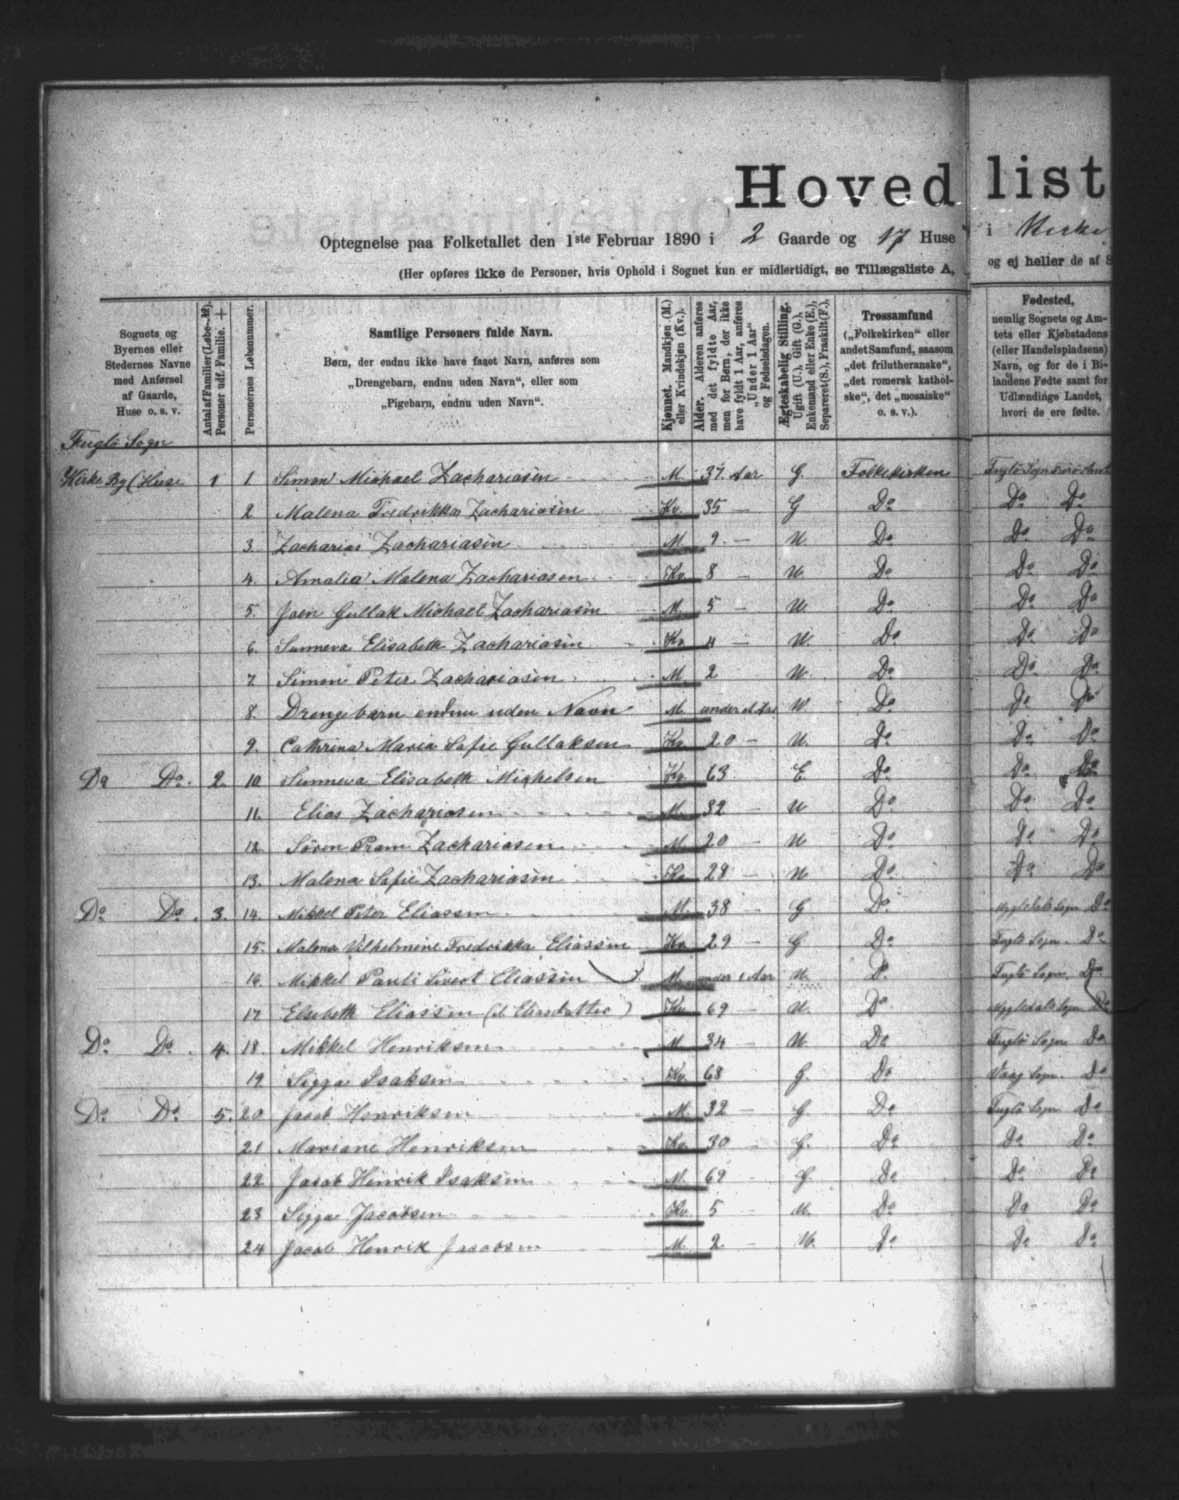 Hovedlist
Optegnelse paa Folketallet den 1ste Februar 1890 i 2 Gaarde og 17 Huse i Kirke
(Her opføres ikke de Personer, hvis Ophold i Sognet kun er midlertidigt, se Tillægsliste A, og ej heller de af S
Sognets og
Byernes eller
Stedernes Navne
med Anførsel
af Gaarde,
Huse o. s. v.
Antal af Familier (Løbe-№).
Personer udf. Familie. +
Personernes Løbenummer.
Samtlige Personers fulde Navn.
Børn, der endnu ikke have faaet Navn, anføres som
„Drengebarn, endnu uden Navn“, eller som
„Pigebarn, endnu uden Navn“.
Kjønnet. Mandkjøn (M.)
eller Kvindekjøn (Kv.).
Alder. Alderen anføres
med det fyldte Aar,
men for Børn, der ikke
have fyldt 1 Aar, anføres
„Under 1 Aar“
og Fødselsdagen.
Ægteskabelig Stilling.
Ugift (U.), Gift (G.),
Enkemand eller Enke (E.),
Separeret (S.), Fraskilt (F.),
Trossamfund
(„Folkekirken“ eller
andet Samfund, saasom
„det frilutheranske“,
„det romersk kathol-
ske“, det „mosaiske“
o. s. v.).
Fødested,
nemlig Sognets og Am-
tets eller Kjøbstadens
(eller Handelspladsens)
Navn, og for de i Bi-
landene Fødte samt for
Udlændinge Landet,
hvori de ere fødte.
Fuglö Sogn
Kirke By (Huse 1 1 Simon Michael Zachariasen M. 37 Aar G. Folkekirken Fuglö Sogn
2 Malena Fredrikka Zachariasen Kv. 35 G Do Do Do
3. Zacharias Zachariasen M. 9. U. Do Do Do
4. Amalia Malena Zachariasen Kv. 8 U. Do Do Do
5. Joen Gullak Michael Zachariasen M. 5 U. Do Do Do
6. Sunneva Elisabeth Zachariasen Kv. 4 U. Do Do Do
7 Simon Peter Zachariasen M. 2 U. Do Do Do
8. Drengebarn endnu uden Navn M. under et Aar U Do Do Do
9. Cathrina Maria Sofie Gullaksen Kv. 20 U. Do Do Do
Do Do. 2. 10 Sunneva Elisabeth Mickelsen Kv. 63 E Do Do Do
11. Elias Zachariasen M. 32 U Do Do Do
12. Sören Pram Zachariasen M. 20 U Do Do Do
13. Malena Sofie Zachariasen Kv. 28 U Do. Do Do
Do Do. 3. 14. Mikkel Peter Eliassen M. 38 G Do Sogn Do
15. Malena Vilhelmine Fredrikka Eliassen Kv. 29 G Do Fuglö Sogn. Do
16. Mikkel Pauli Sivert Eliassen M. under 1 Aar U. Do Fuglö Sogn. Do
17 Elsebeth Eliassen (d. Eliasdatter) Kv. 69 U. Do Sogn Do
Do Do. 4. 18. Mikkel Henriksen M. 34 U Do Fuglö Sogn Do
19 Sigga Isaksen Kv. 68 G. Do Sogn. Do
Do Do 5. 20 Jacob Henriksen M. 32 G Do Fuglö Sogn Do
21 Mariane Henriksen Kv. 30 G. Do Do Do
22 Jacob Henrik Isaksen M. 69 G. Do Do Do
23 Sigga Jacobsen Kv. 5 U. Do Do Do
24 Jacob Henrik Jacobsen M. 2 U. Do Do Do